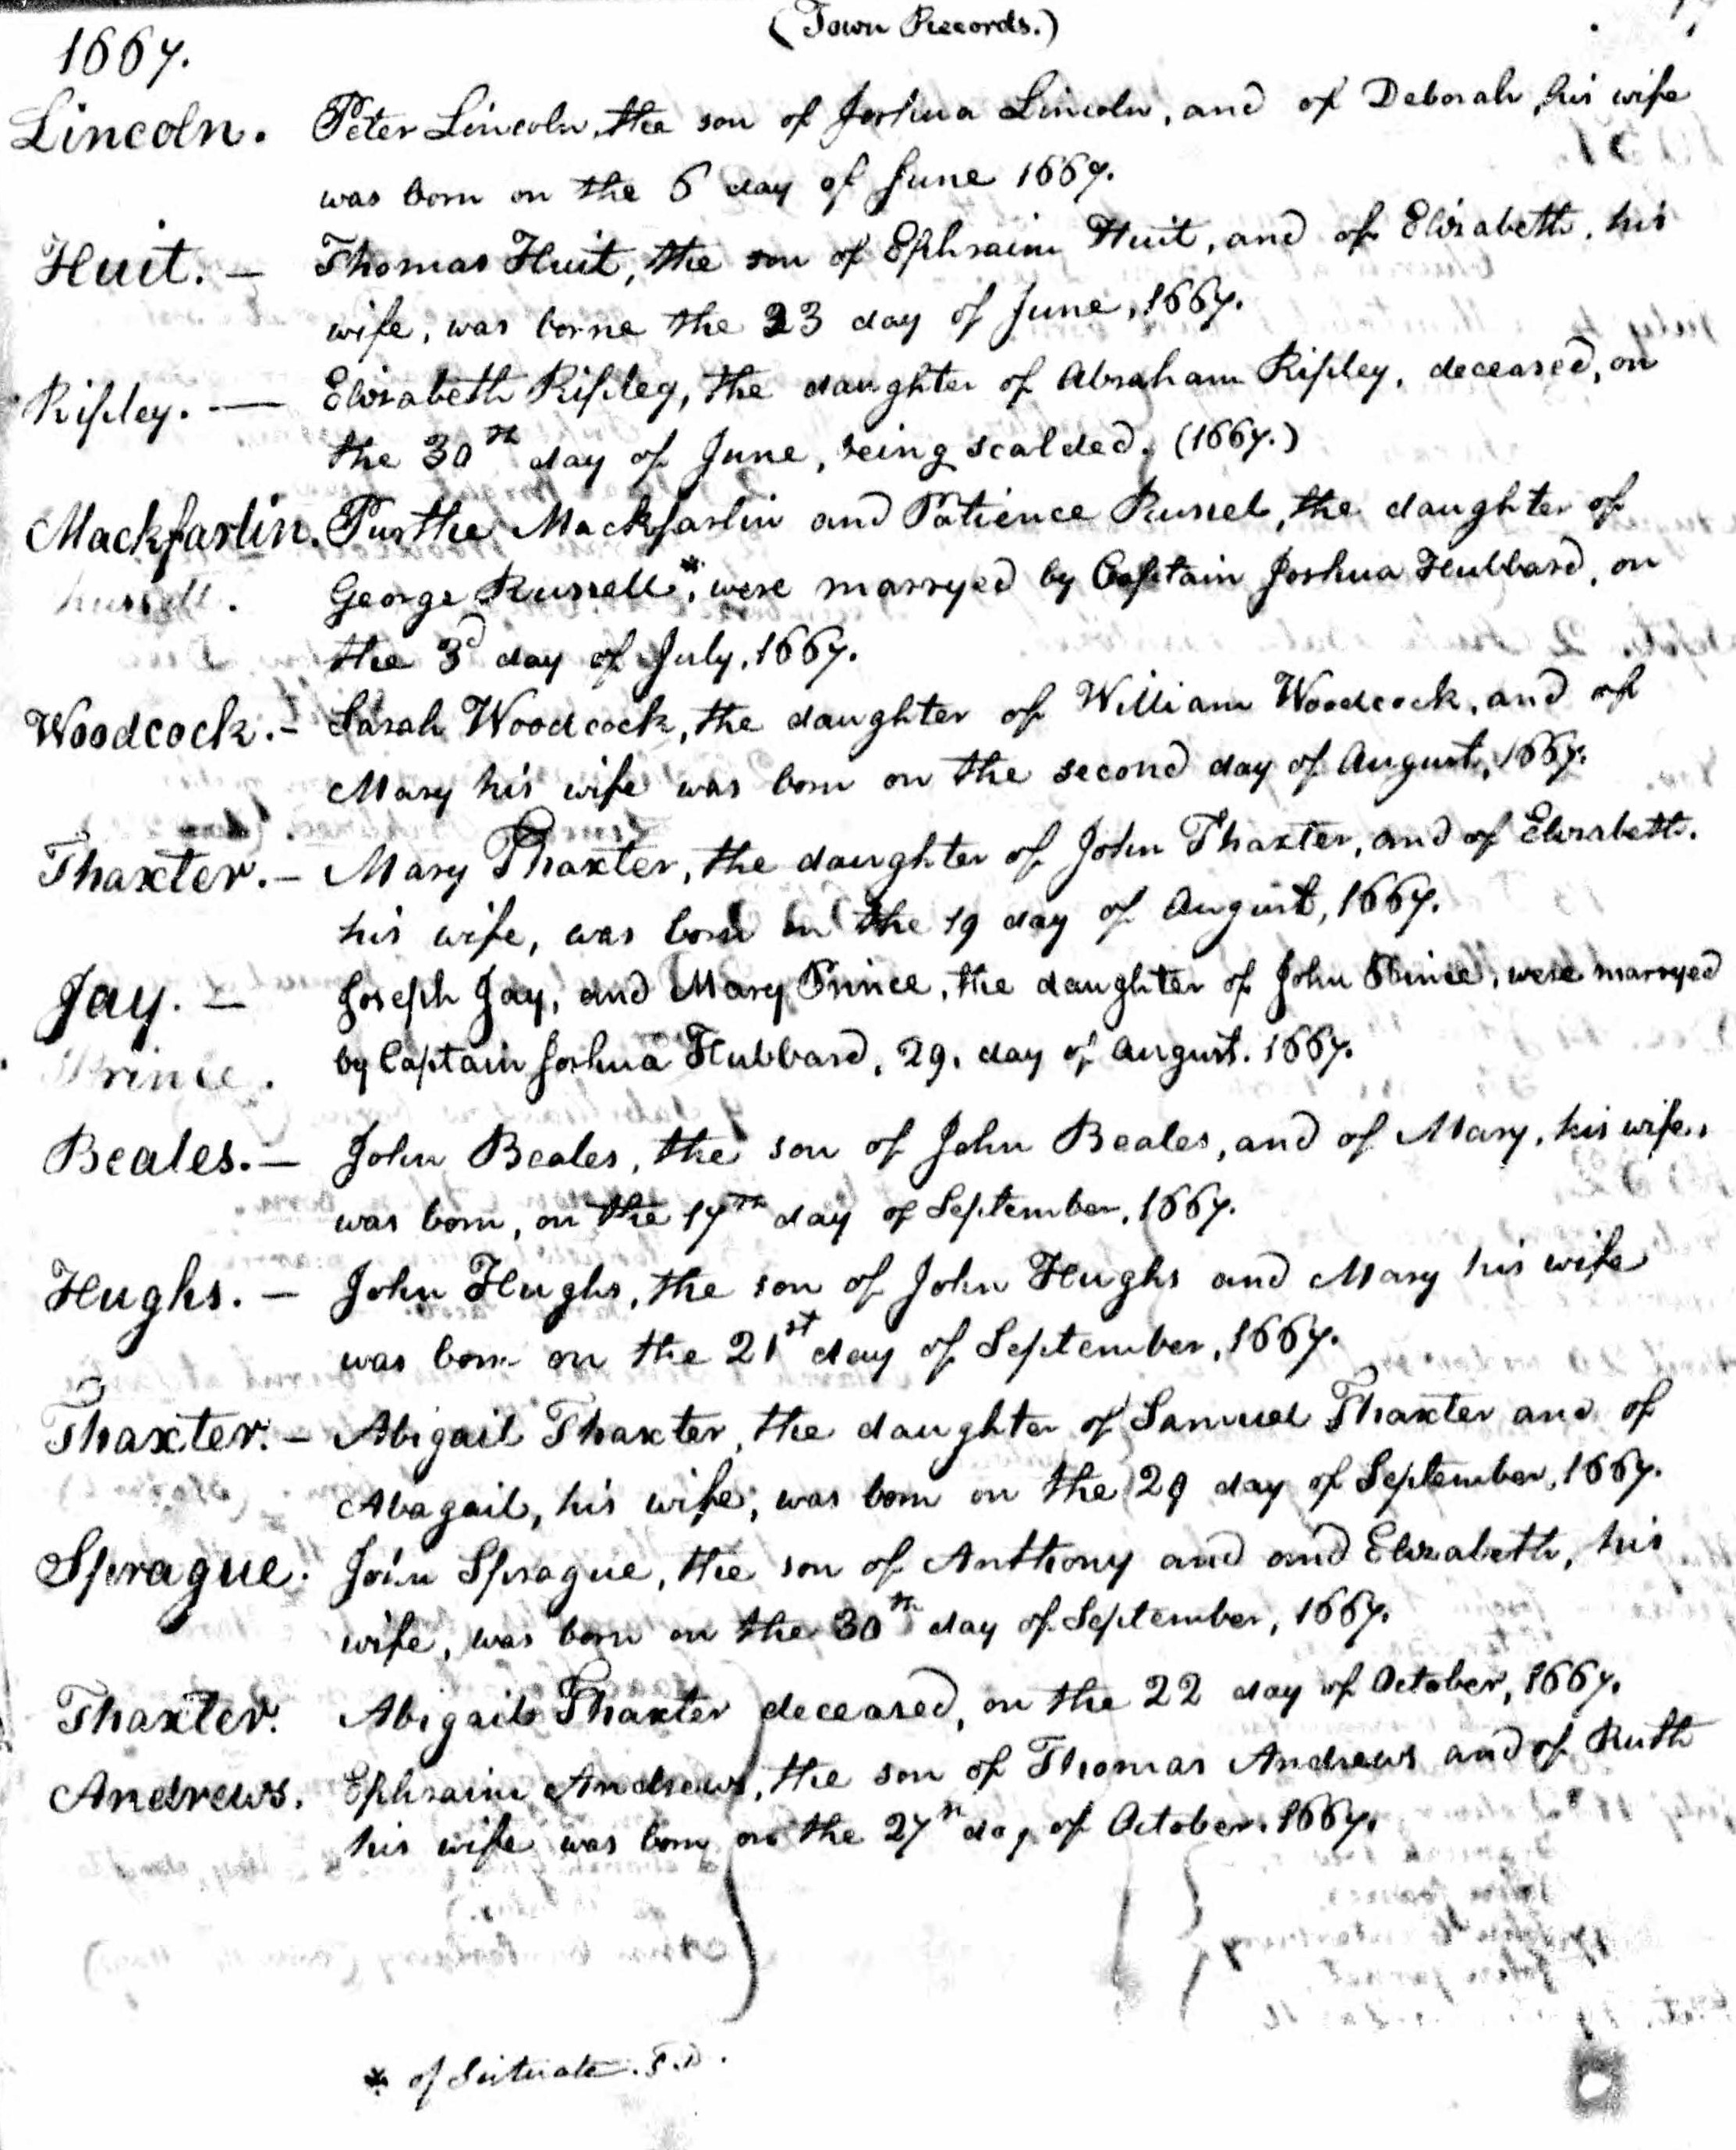 (Town Records.)
1667.
Lincoln. Peter Lincoln, the son of Joshua Lincoln, and of Deborah, his wife
was born on the 6 day of June 1667.
Huit. – Thomas Huit, the son of Ephraim Huit, and of Elizabeth, his
wife, was borne the 23 day of June, 1667.
Ripley. — Elizabeth Ripley, the daughter of Abraham Ripley, deceased, on
the 30th day of June, being scalded. (1667.)
Mackfarlin. Purthe Mackfarlin and Patience Russel, the daughter of
russell. George Russell*, were marryed by Captain Joshua Hubbard, on
the 3d day of July, 1667.
Woodcock. – Sarah Woodcock, the daughter of William Woodcock, and of
Mary his wife was born on the second day of August, 1667.
Thaxter. – Mary Thaxter, the daughter of John Thaxter, and of Elizabeth.
his wife, was born on the 19 day of August, 1667.
Jay. – Joseph Jay, and Mary Prince, the daughter of John Prince, were marryed
Prince. by Captain Joshua Hubbard, 29. day of August. 1667.
Beales. – John Beales, the son of John Beales, and of Mary, his wife,
was born, on the 17th day of September, 1667.
Hughs. – John Hughs, the son of John Hughs and Mary his wife
was born on the 21st day of September, 1667.
Thaxter. – Abigail Thaxter, the daughter of Samuel Thaxter and of
Abagail, his wife, was born on the 29 day of September, 1667.
Sprague. John Sprague, the son of Anthony and and Elizabeth, his
wife, was born on the 30th day of September, 1667.
Thaxter. Abigail Thaxter deceased, on the 22 day of October, 1667.
Andrews. Ephraim Andrews, the son of Thomas Andrews and of Ruth
his wife was born on the 27th day of October. 1667.
* of Scituate. F.D.